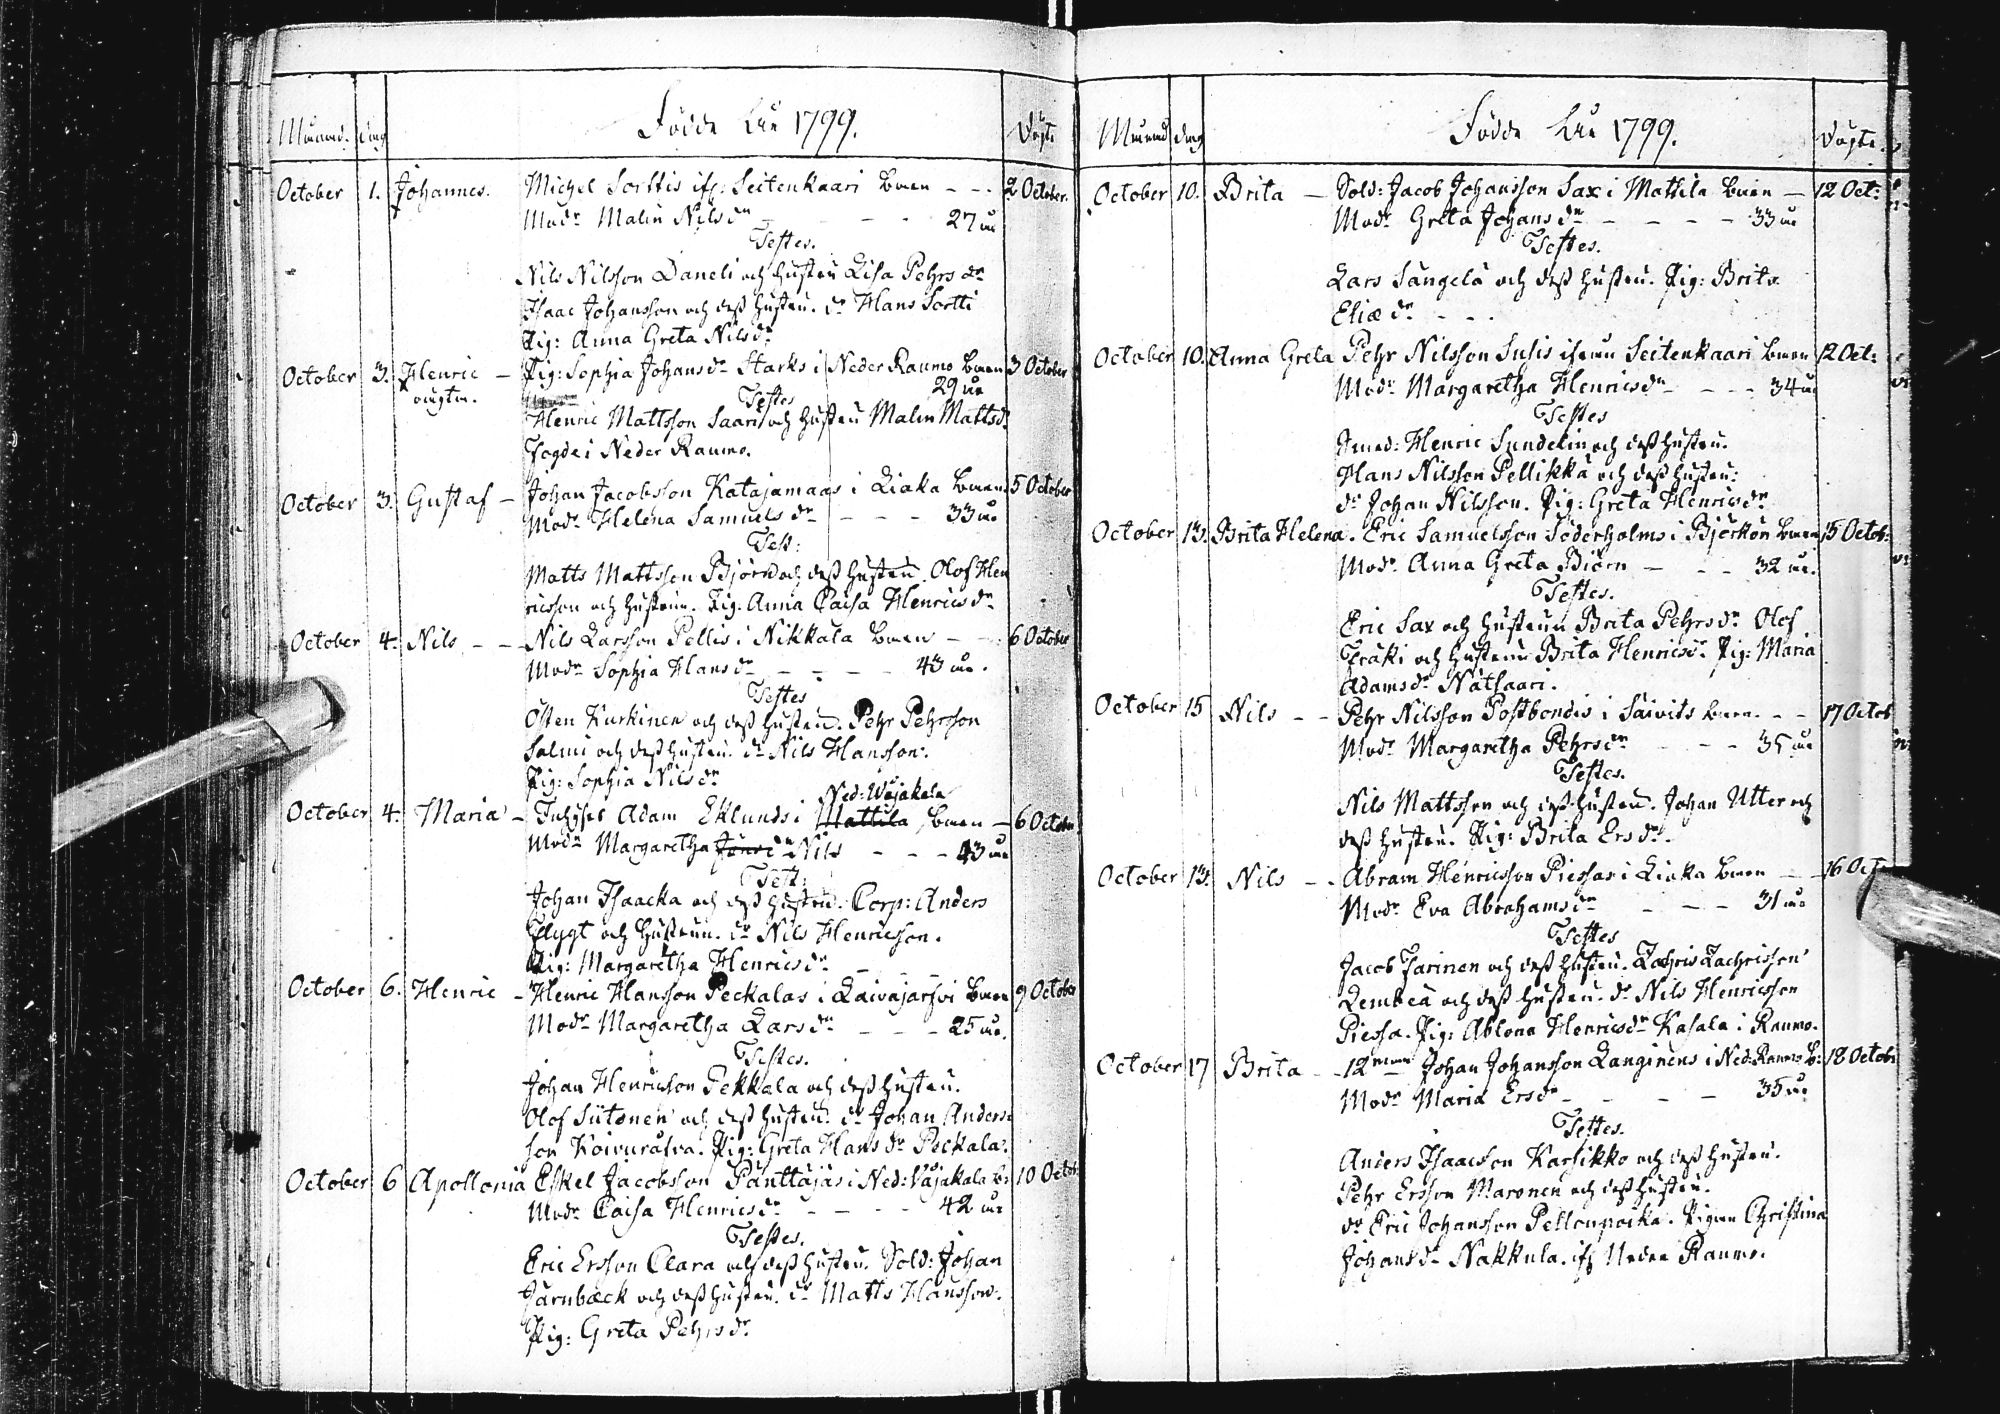 Månad. dag Födde åhr 1799. Döpte
October 1. Johannes. Michel Sorttis ifr: Seitenkaari barn - - 2 October.
Modr Malin Nilsdr - - - 27 år
Testes.
Nils Nilsson Daneli och hustru Lisa Pehrsdr
Isaac Johansson och dess hustru. dr Hans Sortti
Pig: Anna Greta Nilsdr
October 3. Henric - Pig: Sophia Johansdr Starks i Neder Raumo barn 3 October
oägta. 29 år
Testes
Henric Mattsson Saari och hustru Malin Mattsdr
Fogde i Neder Raumo.
October 3. Gustaf - Johan Jacobsson Katajamaas i Liaka barn 5 October
Modr Helena Samuelsdr - - - 33 år
Test:
Matts Mattsson Björn och dess hustru. Olof Hen
ricsson och hustrun. Pig. Anna Caisa Henricsdr
October 4. Nils - - Nils Larsson Pellis i Nikkala barn - - 6 October
Modr Sophia Hansdr - - - 43 år.
Testes
Östen Kurkinen och dess hustru. Pehr Pehrsson
Salmi och dess hustru. dr Nils Hansson.
Pig: Sophia Nilsdr
Ned: Wojakala
October 4. Maria - Adam Eklunds i Mattila barn - 6 October
Modr Margaretha Jönsdr Nils - - - 43 år
Test:
Johan Isaacka och dess hustru. Corp: Anders
Flygt och hustrun. dr Nils Henricsson.
Pig: Margaretha Henricsdr
October 6. Henric - Henric Hansson Peckalas i Laivajarfvi barn 9 October
Modr Margaretha Larsdr - - - 25 år.
Testes.
Johan Henricsson Pekkala och dess hustru.
Olof Siitonen och dess hustru. dr Johan Anders-
son Koivurafva. Pig: Greta Hansdr Peckala.
October 6 Apollonia Eskel Jacobsson Panttajas i Ned: Väjakala b: 10 Octob:
Modr Caisa Henricsdr - - - - 42 år
Testes.
Eric Ersson Clara och dess hustru. Sold: Johan
Jarnbäck och dess hustru. dr Matts Hansson.
Pig: Greta Pehrsdr
Månad dag Födde åhr 1799. Döpte
October 10. Brita - Sold: Jacob Johansson Sax i Mattila barn - 12 Oct:
Modr Greta Johansdr - - - - 33 år
Testes.
Lars Sangela och dess hustru. Pig: Brita
Eliædr - - .
October 10. Anna Greta Pehr Nilsson Susis ifrån Seitenkaari barn 12 Oct:
Modr Margaretha Henricsdr - - - 34 år
Testes
Henric Sundelin och dess hustru.
Hans Nilsson Pellikka och dess hustru.
dr Johan Nilsson. Pig: Greta Henricsdr
October 13. Brita Helena. Eric Samuelsson Söderholms i Björkön barn 15 Octob:
Modr Anna Greta Biörn - - - 32 år.
Testes.
Eric Sax och hustrun Brita Pehrsdr Olof
Fraki och hustrun Brita Henricsdr. Pig: Maria
Adamsdr Natsaari.
October 15 Nils - - Pehr Nilsson Postbondis i Saivits barn. - - 17 Octob
Modr Margaretha Pehrsdr - - - 35 år
Testes.
Nils Mattsson och dess hustru. Johan Utter och
dess hustru. Pig: Brita Ersdr.
October 13. Nils - - Abram Henricsson Piessas i Liaka barn - - 16 Oct
Modr Eva Abrahamsdr - - - 31 år
Testes
Jacob Jarinen och dess hustru. Zachris Zachrisson
Lembea och dess hustru. dr Nils Henricsson
Piessa. Pig: Ablona Henricsdr Kasala i Raumo.
October 17 Brita - 12 man Johan Johansson Langinens i Ned: Raumo b: 18 Octob:
Modr Maria Ersdr - - - - 35 år
Testes.
Anders Isaacson Karsikko och dess hustru.
Pehr Ersson Maronen och dess hustru.
dr Eric Johansson Pelloupoika. Pigan Christina
Johansdr Nakkula. ifr Neder Raumo.